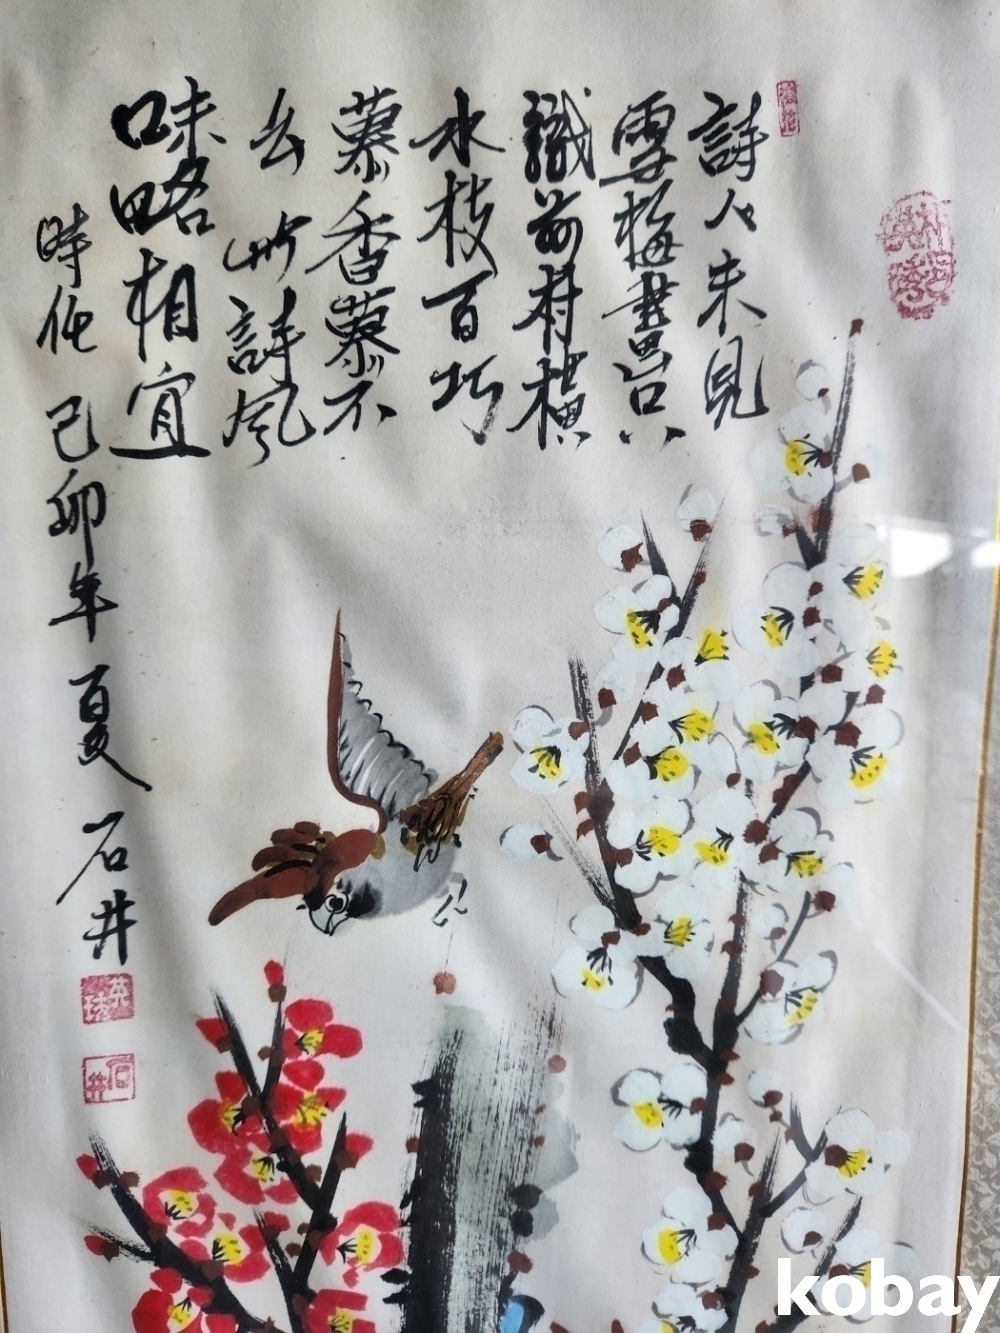 詩人未見
雪梅畫只
識前村橫
水枝百巧
慕香慕不
去此詩風
味略相宜
時在 己卯年 夏 石井
石井
kobay